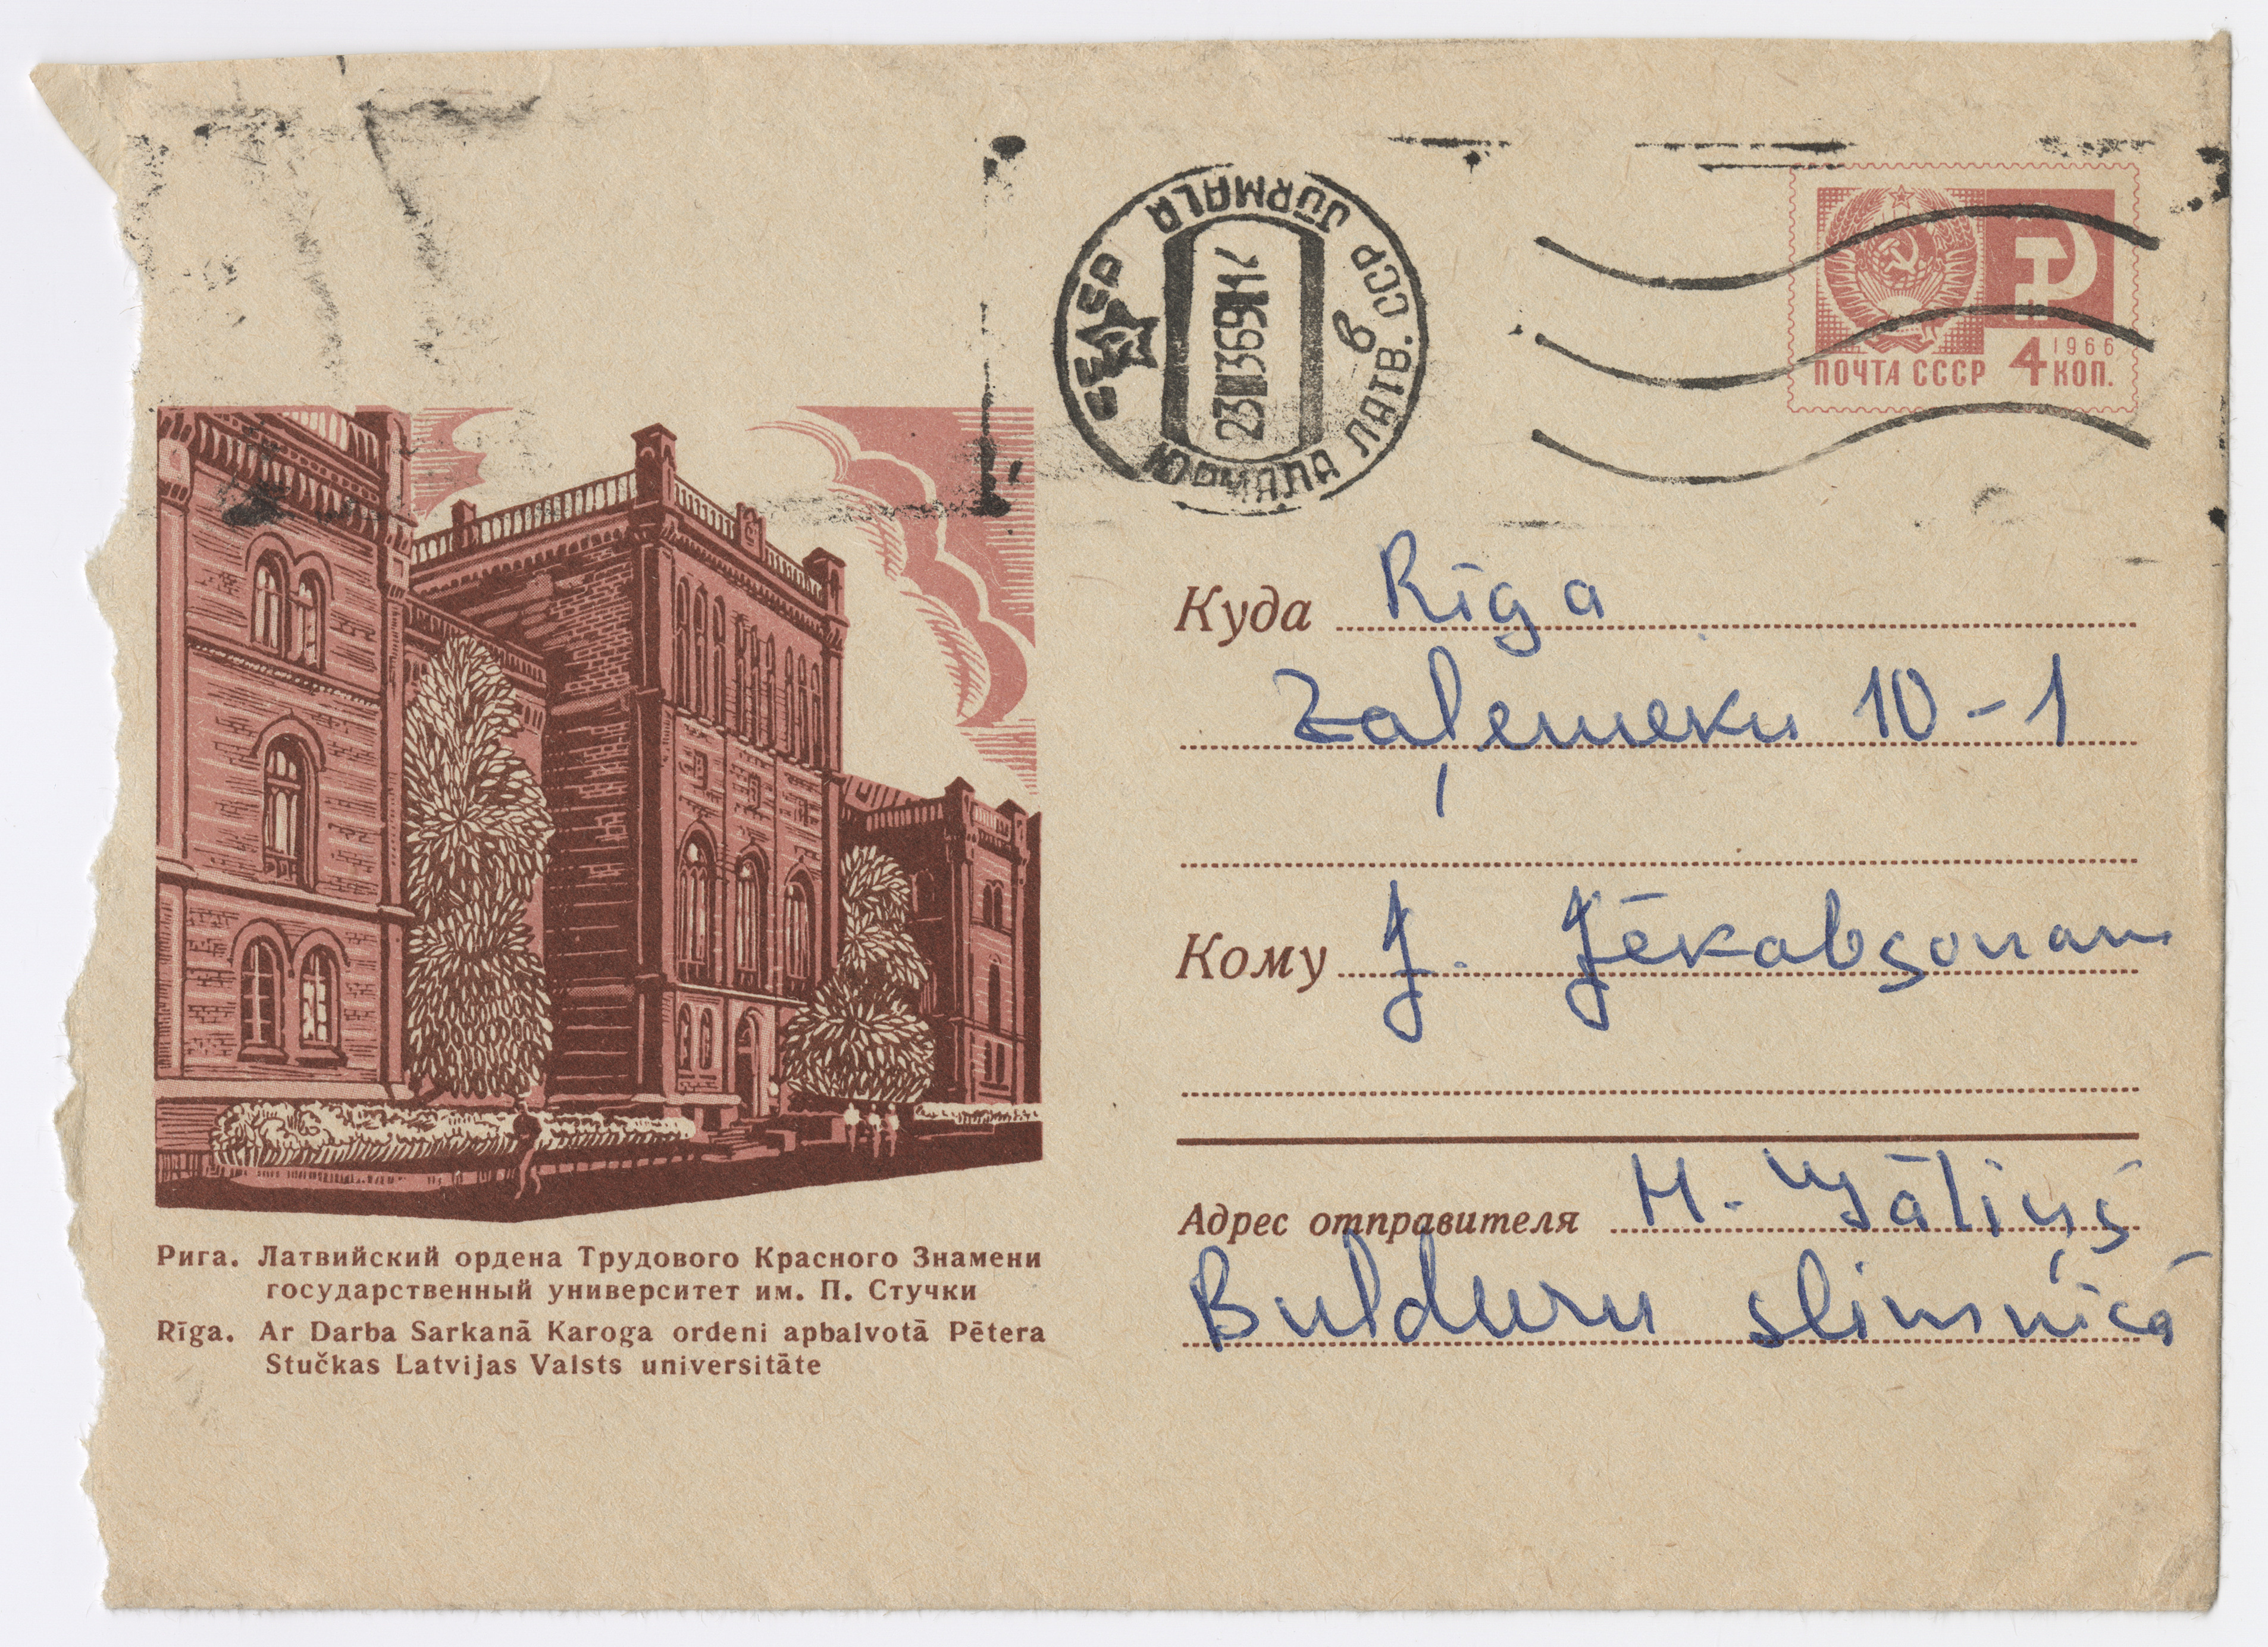 JŪRMALA
ЮРМАЛА ЛАТВ. ССР
23 III 69
ПОЧТА СССР 4 КОП.
1966
Куда Rīga
Zaļemeku 10-1
Кому J. Jēkabsonam
Адрес отправителя H. Gāliņš
Bulduru slimnīcā
Рига. Латвийский ордена Трудового Красного Знамени
государственный университет им. П. Стучки
Rīga. Ar Darba Sarkanā Karoga ordeni apbalvotā Pētera
Stučkas Latvijas Valsts universitāte